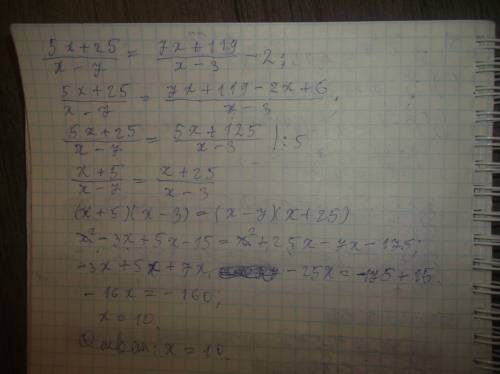 (5x+25)/(x-7) = (7x+119)/(x-3) - 2;
(5x+25)/(x-7) = (7x+119-2x+6)/(x-3);
(5x+25)/(x-7) = (5x+125)/(x-3) | : 5
(x+5)/(x-7) = (x+25)/(x-3)
(x+5)(x-3) = (x-7)(x+25)
x² - 3x + 5x - 15 = x² + 25x - 7x - 175;
-3x + 5x + 7x - 25x = -175 + 15
-16x = -160;
x = 10
Ответ: x = 10.